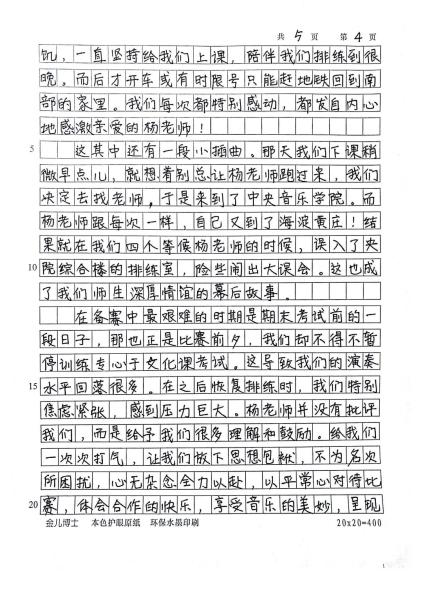 共 5 页 第 4 页
饥，一直坚持给我们上课，陪伴我们排练到很
晚。而后才开车或有时限号只能赶地铁回到南
部的家里。我们每次都特别感动，都发自内心
地感激亲爱的杨老师！
5 这其中还有一段小插曲。那天我们下课稍
微早点儿，就想着别总让杨老师跑过来，我们
决定去找老师，于是来到了中央音乐学院。而
杨老师跟每次一样，自己又到了海淀黄庄！结
果就在我们四个等候杨老师的时候，误入了央
10 院综合楼的排练室，险些闹出大误会。这也成
了我们师生深厚情谊的幕后故事。
在备赛中最艰难的时期是期末考试前的一
段日子，那也正是比赛前夕，我们却不得不暂
停训练专心于文化课考试。这导致我们的演奏
15 水平回落很多。在之后恢复排练时，我们特别
焦虑紧张，感到压力巨大。杨老师并没有批评
我们，而是给予我们很多理解和鼓励。给我们
一次次打气，让我们放下思想包袱，不为名次
所困扰，心无杂念全力以赴，以平常心对待比
20 赛，体会合作的快乐，享受音乐的美妙，呈现
金儿博士 本色护眼原纸 环保水墨印刷 20x20=400
1